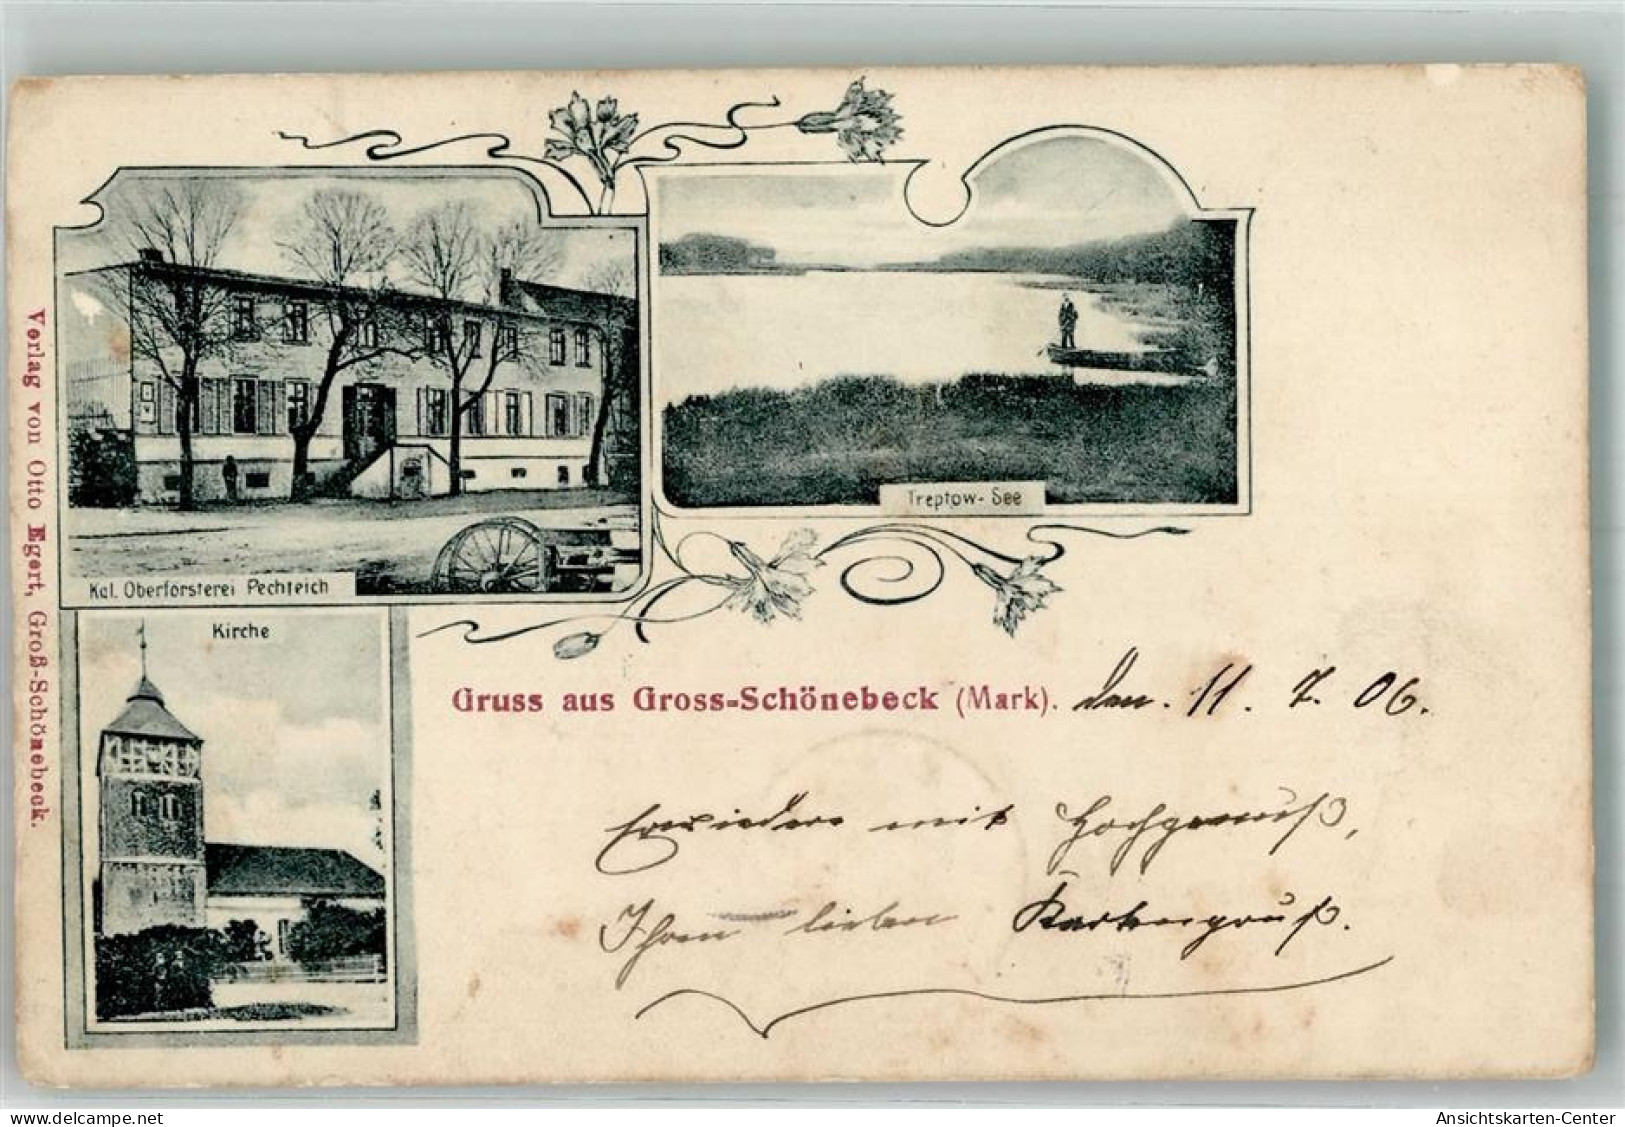 Kgl. Oberförsterei Pechteich
Treptow-See
Kirche
Verlag von Otto Egert, Groß-Schönebeck.
Gruss aus Gross-Schönebeck (Mark). den. 11. 7. 06.
Erwiedere mit Hochgenuß,
Ihren lieben Kartengruß.
Ansichtskarten-Center